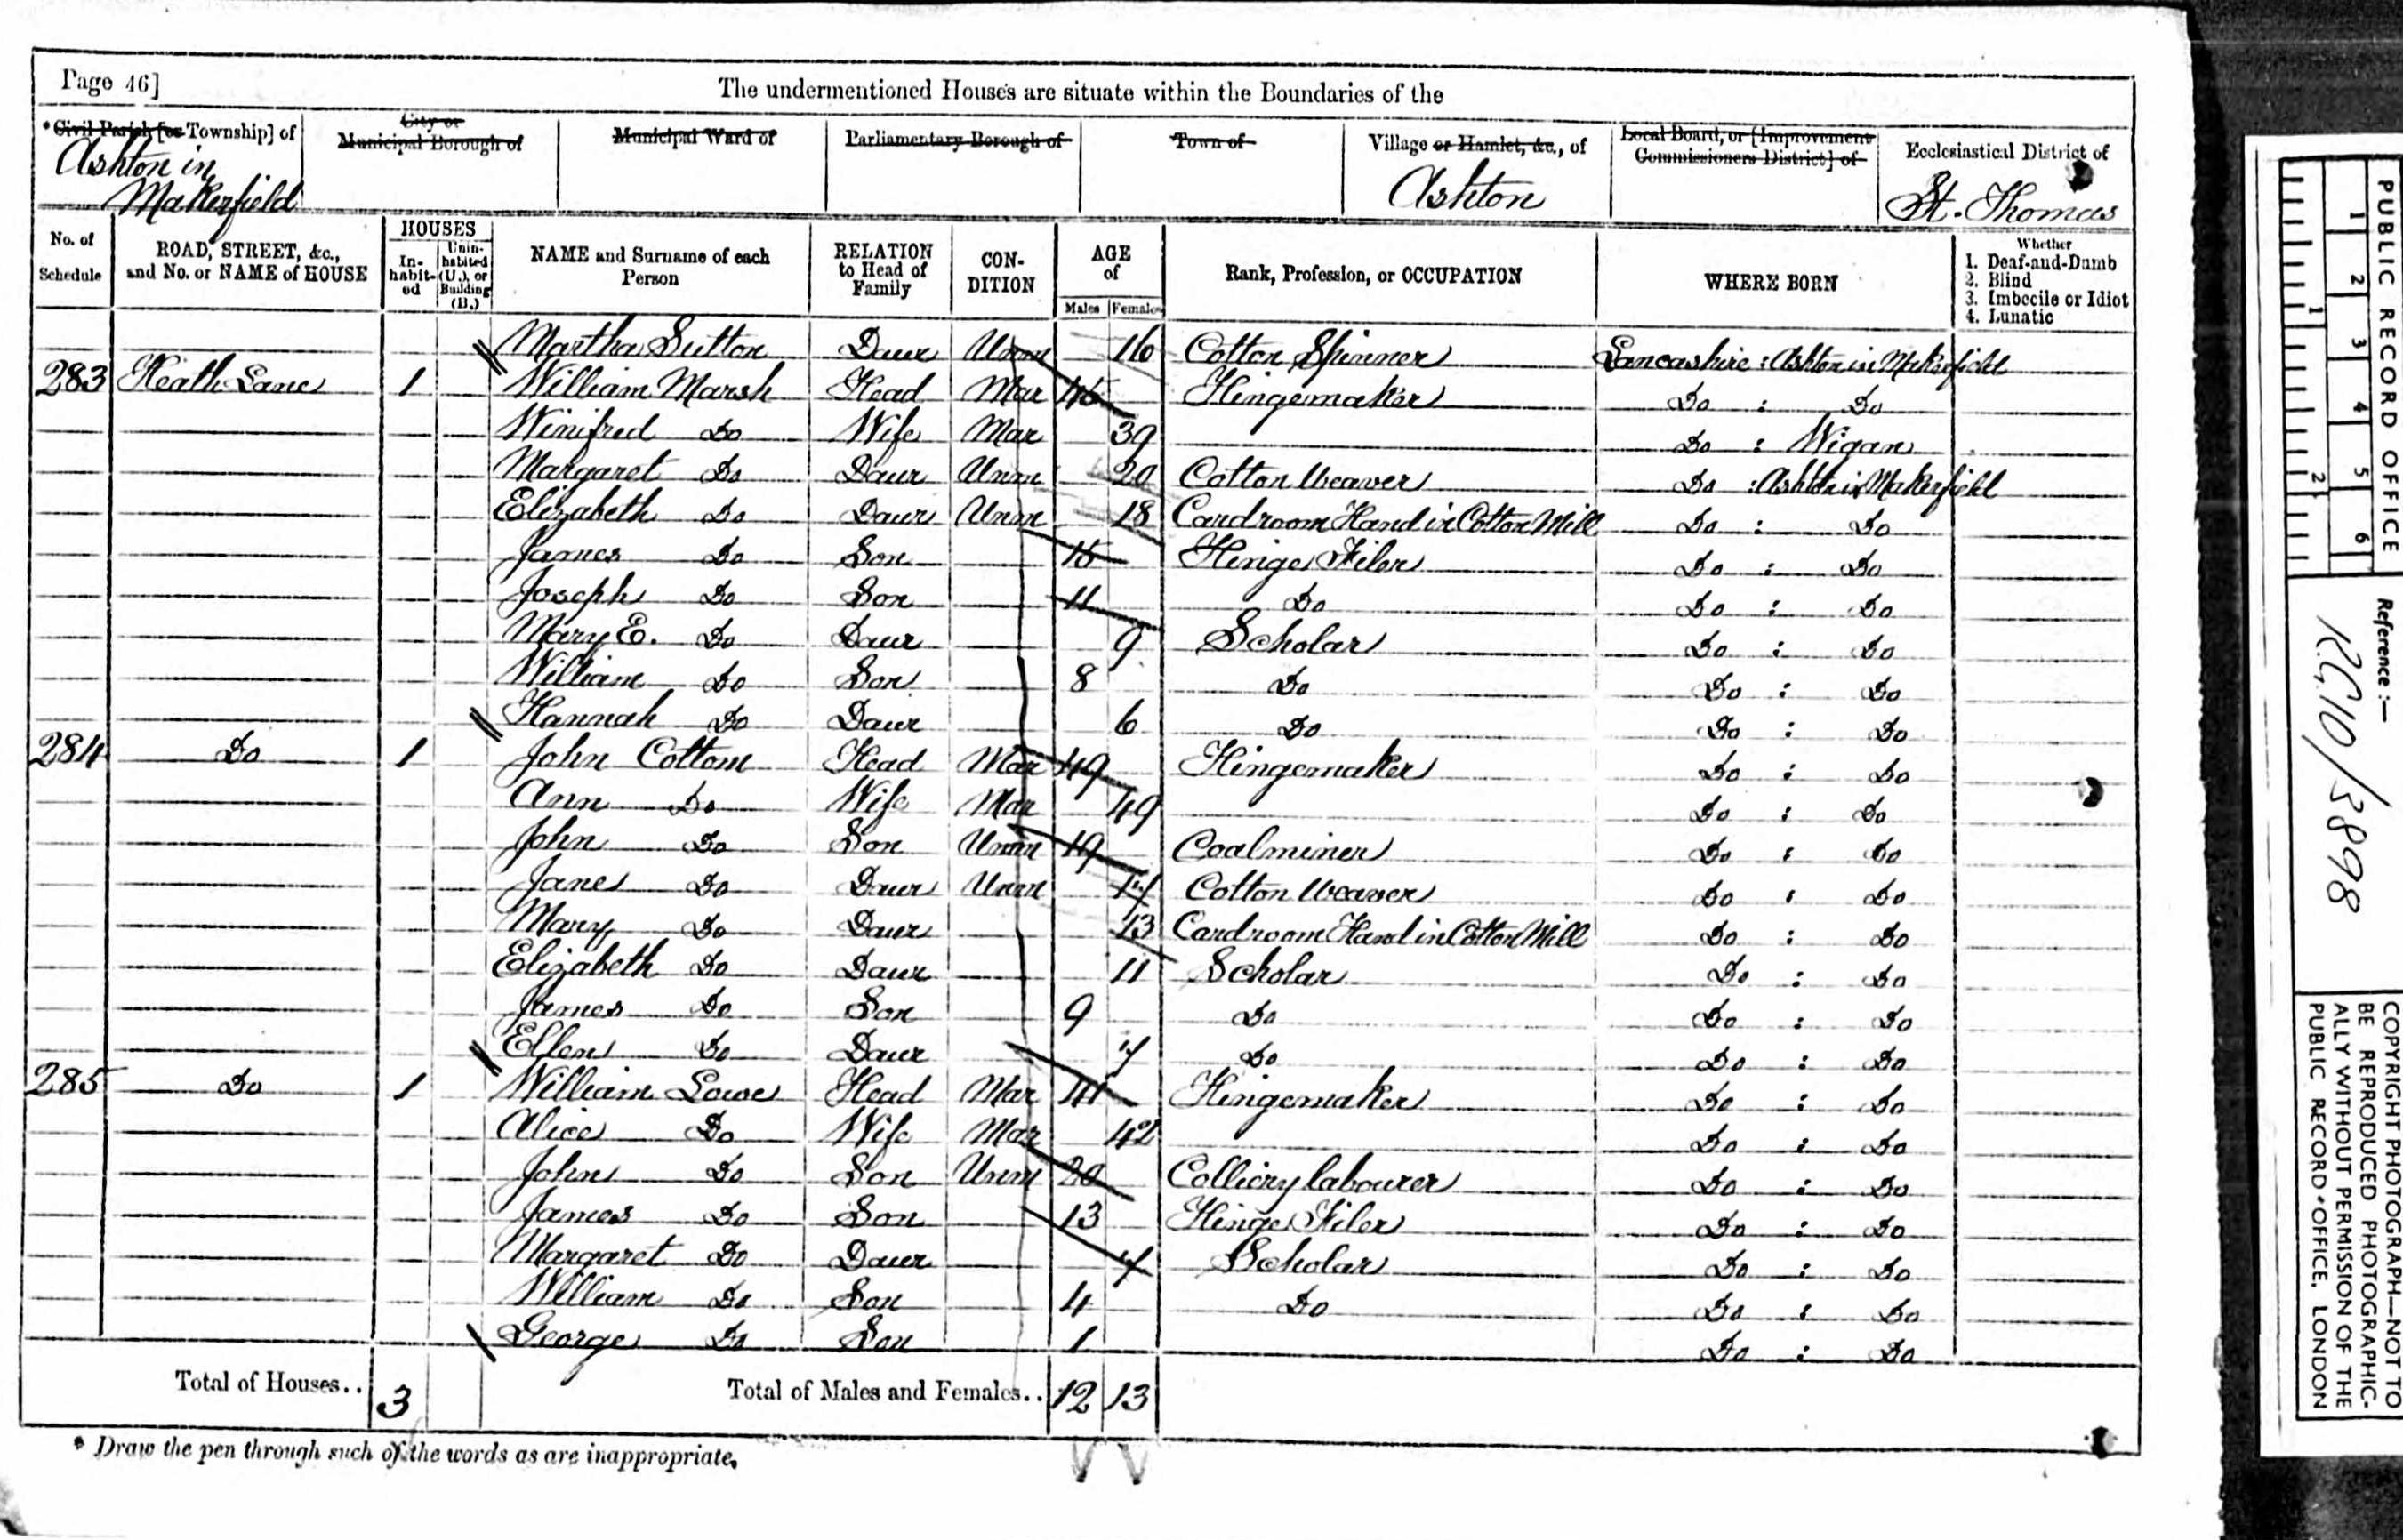 Page 46]
The undermentioned Houses are situate within the Boundaries of the
*Civil Parish [or Township] of
City or Municipal Borough of
Municipal Ward of
Parliamentary Borough of
Town of
Village or Hamlet, &c., of
Local Board, or [Improvement Commissioners District] of
Ecclesiastical District of
Ashton in Makerfield
Ashton
St. Thomas
No. of Schedule
ROAD, STREET, &c., and No. or NAME of HOUSE
HOUSES
In-habit-ed
Unin-habited (U.), or Building (B.)
NAME and Surname of each Person
RELATION to Head of Family
CON-DITION
AGE of
Males Females
Rank, Profession, or OCCUPATION
WHERE BORN
Whether
1. Deaf-and-Dumb
2. Blind
3. Imbecile or Idiot
4. Lunatic
Martha Sutton Daur Unm 16 Cotton Spinner Lancashire : Ashton in Makerfield
283 Heath Lane 1 William Marsh Head Mar 45 Hingemaker Do : Do
Winifred Do Wife Mar 39 Do : Wigan
Margaret Do Daur Unm 20 Cotton Weaver Do : Ashton in Makerfield
Elizabeth Do Daur Unm 18 Cardroom Hand in Cotton Mill Do : Do
James Do Son 15 Hinge Filer Do : Do
Joseph Do Son 11 Do Do : Do
Mary E. Do Daur 9 Scholar Do : Do
William Do Son 8 Do Do : Do
Hannah Do Daur 6 Do Do : Do
284 Do 1 John Cottom Head Mar 49 Hingemaker Do : Do
Ann Do Wife Mar 49 Do : Do
John Do Son Unm 19 Coalminer Do : Do
Jane Do Daur Unm 17 Cotton Weaver Do : Do
Mary Do Daur 13 Cardroom Hand in Cotton Mill Do : Do
Elizabeth Do Daur 11 Scholar Do : Do
James Do Son 9 Do Do : Do
Ellen Do Daur 7 Do Do : Do
285 Do 1 William Lowe Head Mar 41 Hingemaker Do : Do
Alice Do Wife Mar 42 Do : Do
John Do Son Unm 20 Colliery labourer Do : Do
James Do Son 13 Hinge Filer Do : Do
Margaret Do Daur 7 Scholar Do : Do
William Do Son 4 Do Do : Do
George Do Son 1 Do : Do
Total of Houses.. 3
Total of Males and Females.. 12 13
* Draw the pen through such of the words as are inappropriate.
PUBLIC RECORD OFFICE
1 2 3 4 5 6
1 2
Reference :—
RG10/3898
COPYRIGHT PHOTOGRAPH—NOT TO
BE REPRODUCED PHOTOGRAPHIC-
ALLY WITHOUT PERMISSION OF THE
PUBLIC RECORD OFFICE, LONDON